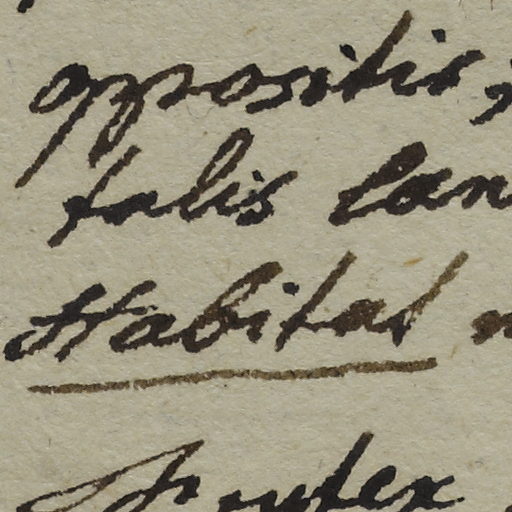 oppositis;
talis lan
Habitat
Frutex